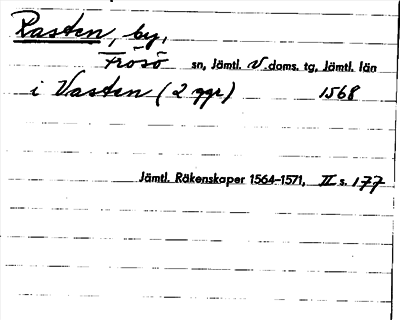 Rasten, by,
Frösö sn, Jämtl. V. doms. tg, Jämtl. län
i Vasten (2 ggr) 1568
Jämtl. Räkenskaper 1564–1571, II s. 177